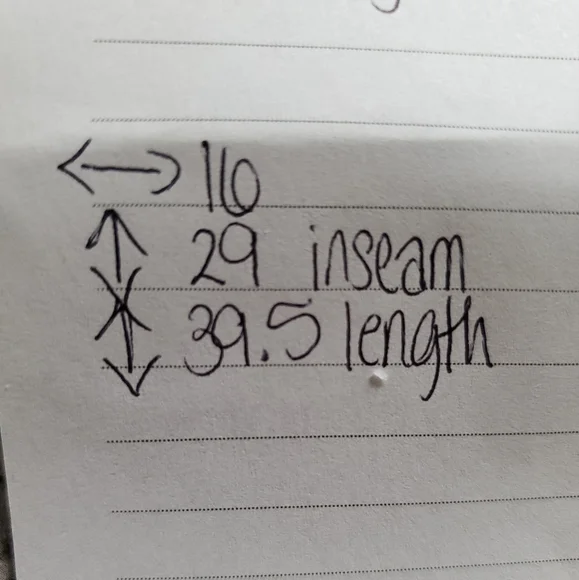 ↔ 16
29 inseam
39.5 length